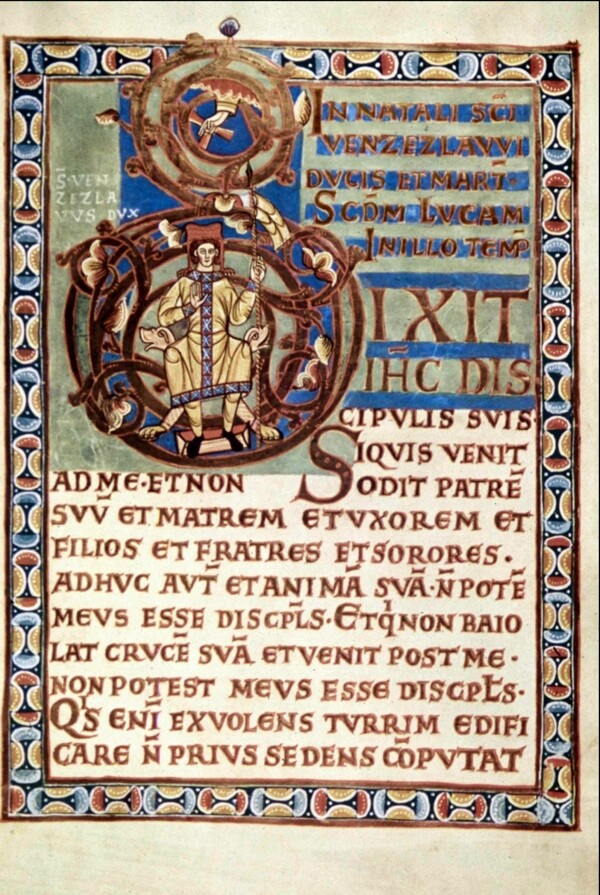 S̄ VEN
ZEZLA
VVS DVX
IN NATALI SC̄I
VENZEZLAVVI
DVCIS ET MART̄·
SCD̄M LVCAM
IN ILLO TEMP̄
DIXIT
IH̄C DIS
CIPVLIS SVIS·
SIQVIS VENIT
AD ME·ET NON ODIT PATRĒ
SVV̄ ET MATREM ET VXOREM ET
FILIOS ET FRATRES ET SORORES·
ADHVC AVT̄ ET ANIMĀ SVĀ·N̄ POTĒ
MEVS ESSE DISCPL̄S·ET Q̄I NON BAIO
LAT CRVCĒ SVĀ ET VENIT POST ME·
NON POTEST MEVS ESSE DISCPL̄S·
QĪS ENĪ EX VOLENS TVRRIM EDIFI
CARE N̄ PRIVS SEDENS CŌPVTAT